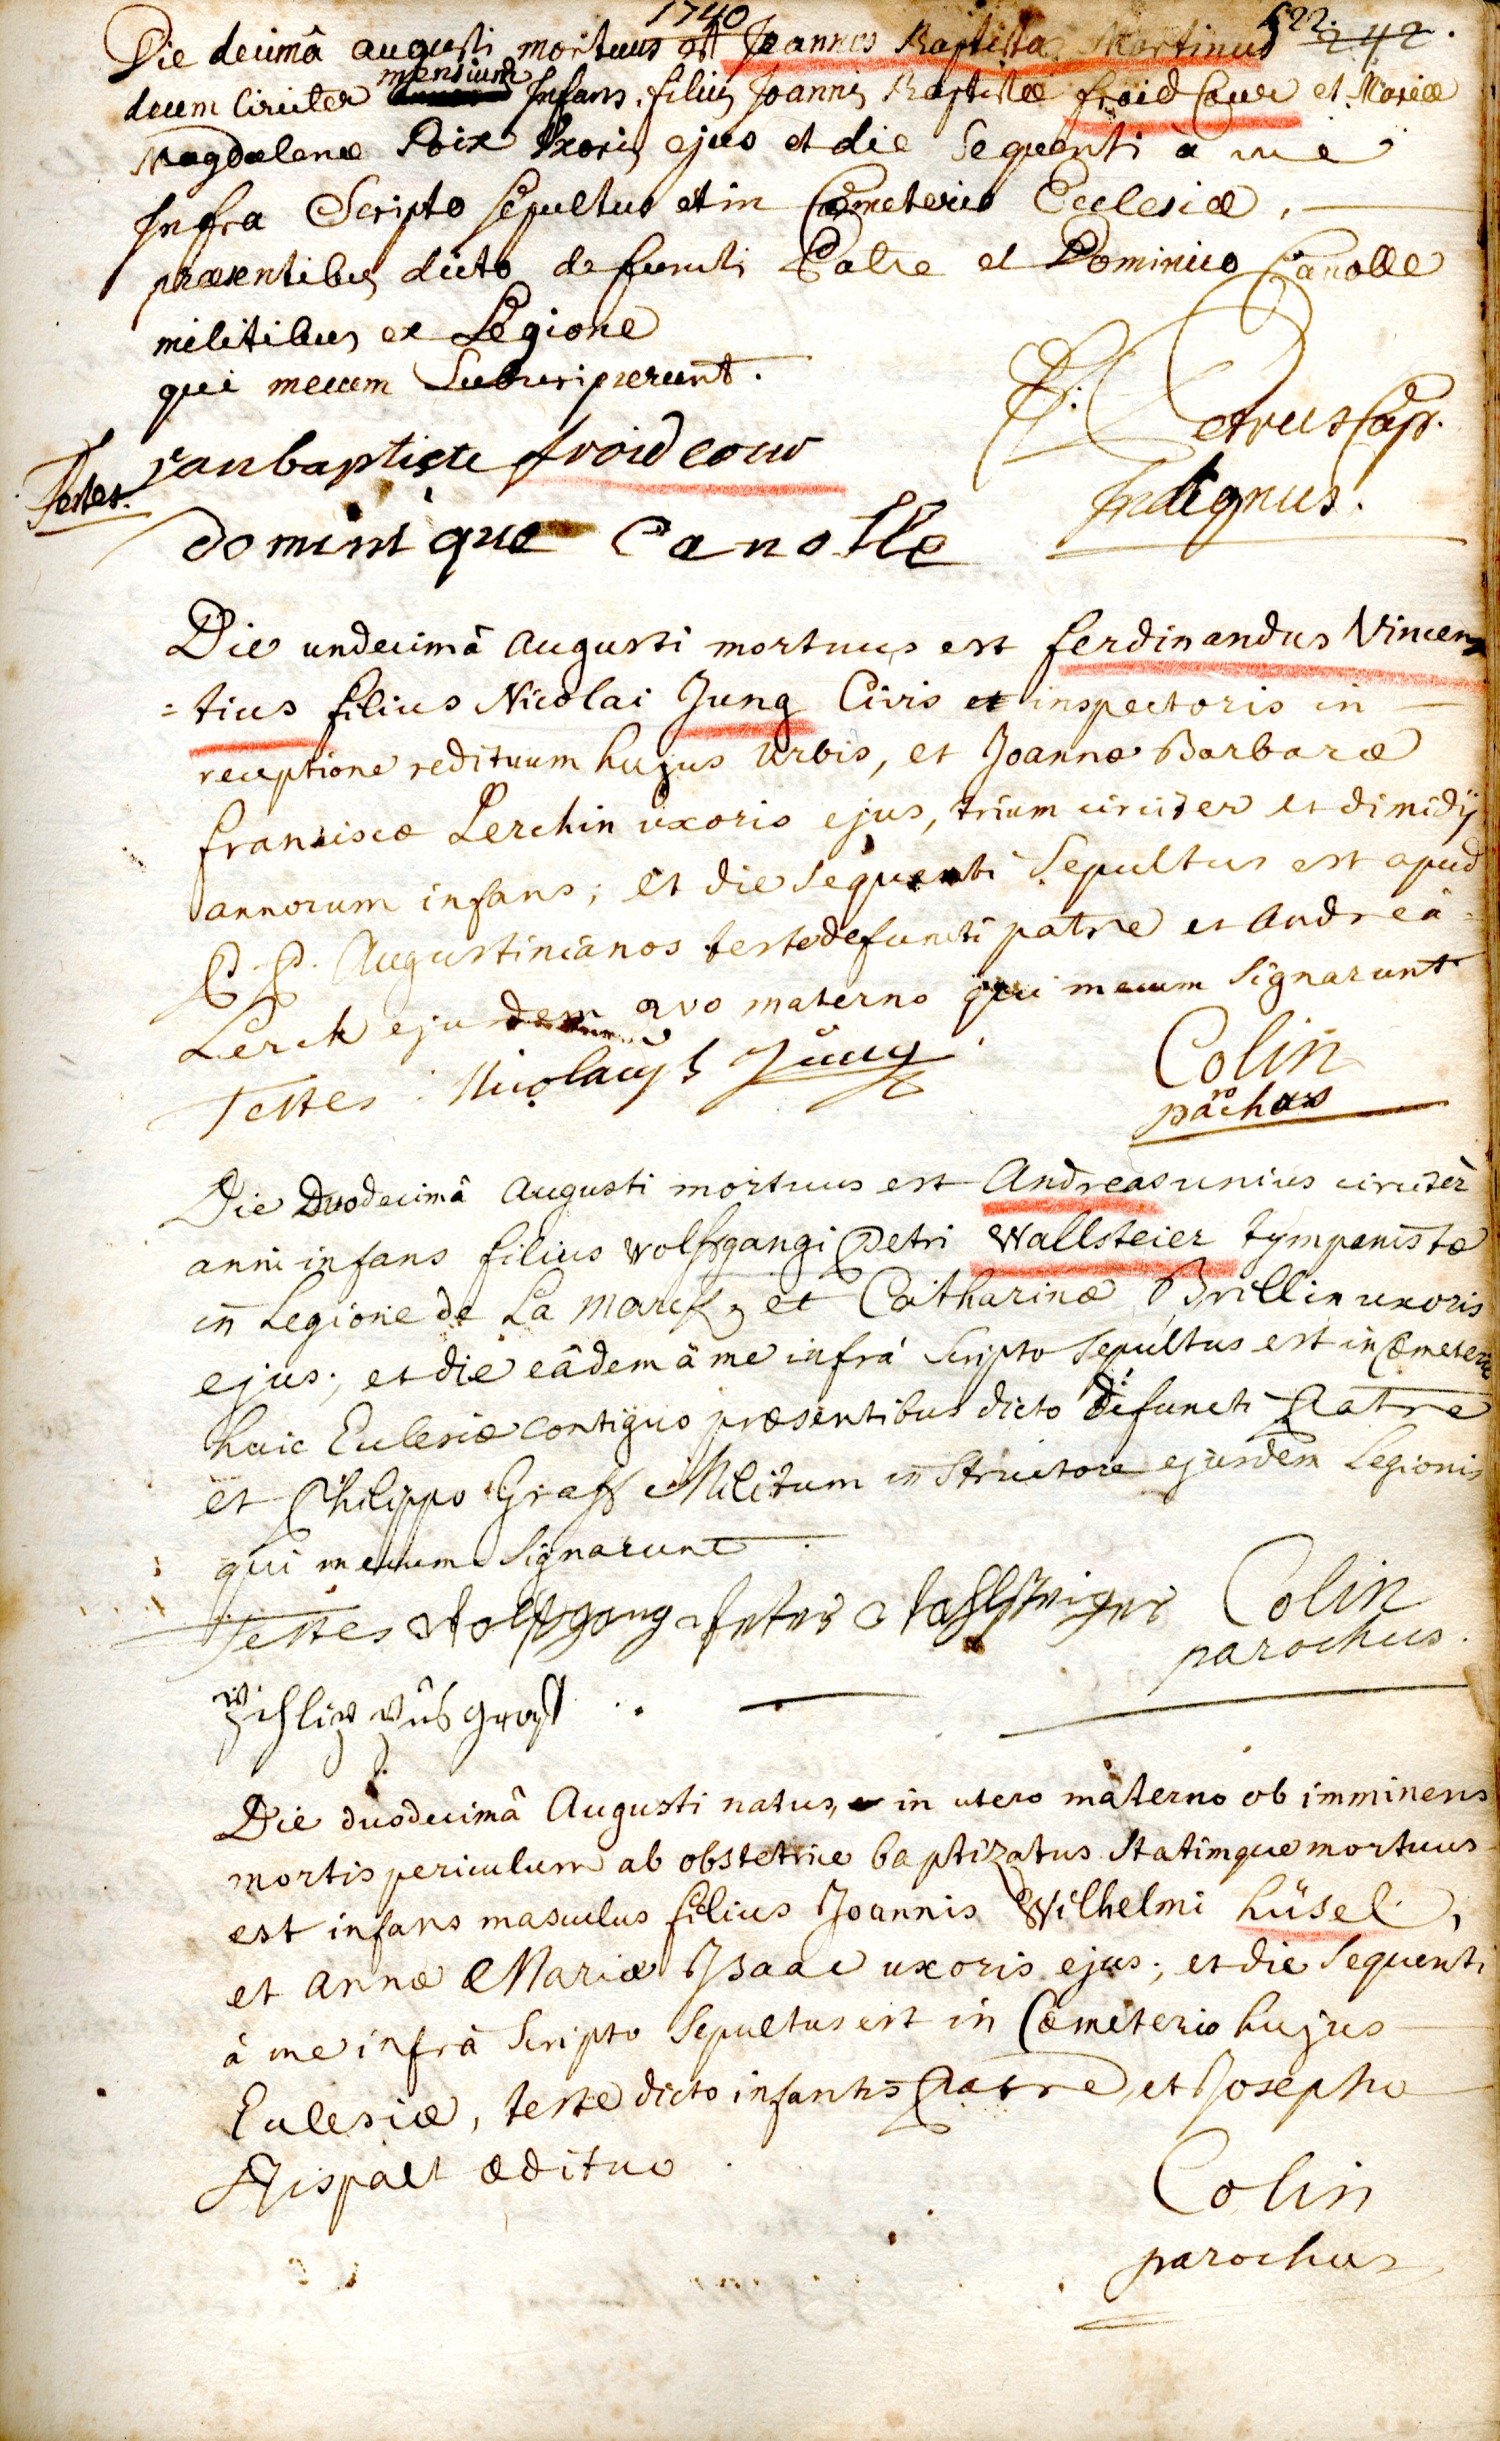 1740
522. 242.
Die decimâ augusti mortuus est Joannes Baptista Martinus
decem Circiter mensium Infans, filius Joannis Baptistæ froid Cour et Mariæ
Magdalenæ Poix Uxoris ejus et die Sequenti à me
Infra Scripto Sepultus est in Cœmeterio Ecclesiæ,
præsentibus dicto defuncti Patre et Dominico Canolle
militibus ex Legione
qui mecum Subscripserunt.
P: Petrus Cap.
Indignus.
Testes. jan baptiste froid cour
dominique Canolle
Die undecimâ Augusti mortuus est ferdinandus Vincen
=tius filius Nicolai Jung Civis et inspectoris in
receptione redituum hujus Urbis, et Joannæ Barbaræ
franciscæ Lerchin uxoris ejus, trium circiter et dimidij
annorum infans; et die sequenti Sepultus est apud
P.P. Augustinianos teste defuncti patre et Andreâ
Lerch ejusdem avo materno qui mecum Signarunt
Testes: Nicolauß Jung
Colin
parochus
Die Duodecimâ Augusti mortuus est Andreas unius circiter
anni infans filius Wolffgangi Petri Wallsteier tympanistæ
in Legione de La Marck, et Catharinæ Brillin uxoris
ejus; et die eâdem à me infrà Scripto Sepultus est in Cœmeterio
huic Ecclesiæ contiguo præsentibus dicto defuncti Patre
et Philippo Graff Militum instructore ejusdem Legionis
qui mecum Signarunt
Testes Wolfgang Peter Wahlsteiger
Colin
parochus.
Die duodecimâ Augusti natus, in utero materno ob imminens
mortis periculum ab obstetrice baptizatus statimque mortuus
est infans masculus filius Joannis Wilhelmi Hüsel,
et Annæ Mariæ Isaac uxoris ejus; et die Sequenti
à me infrà Scripto Sepultus est in Cœmeterio hujus
Ecclesiæ, teste dicto infantis Patre, et Josepho
Hispalt ædituo
Colin
parochus